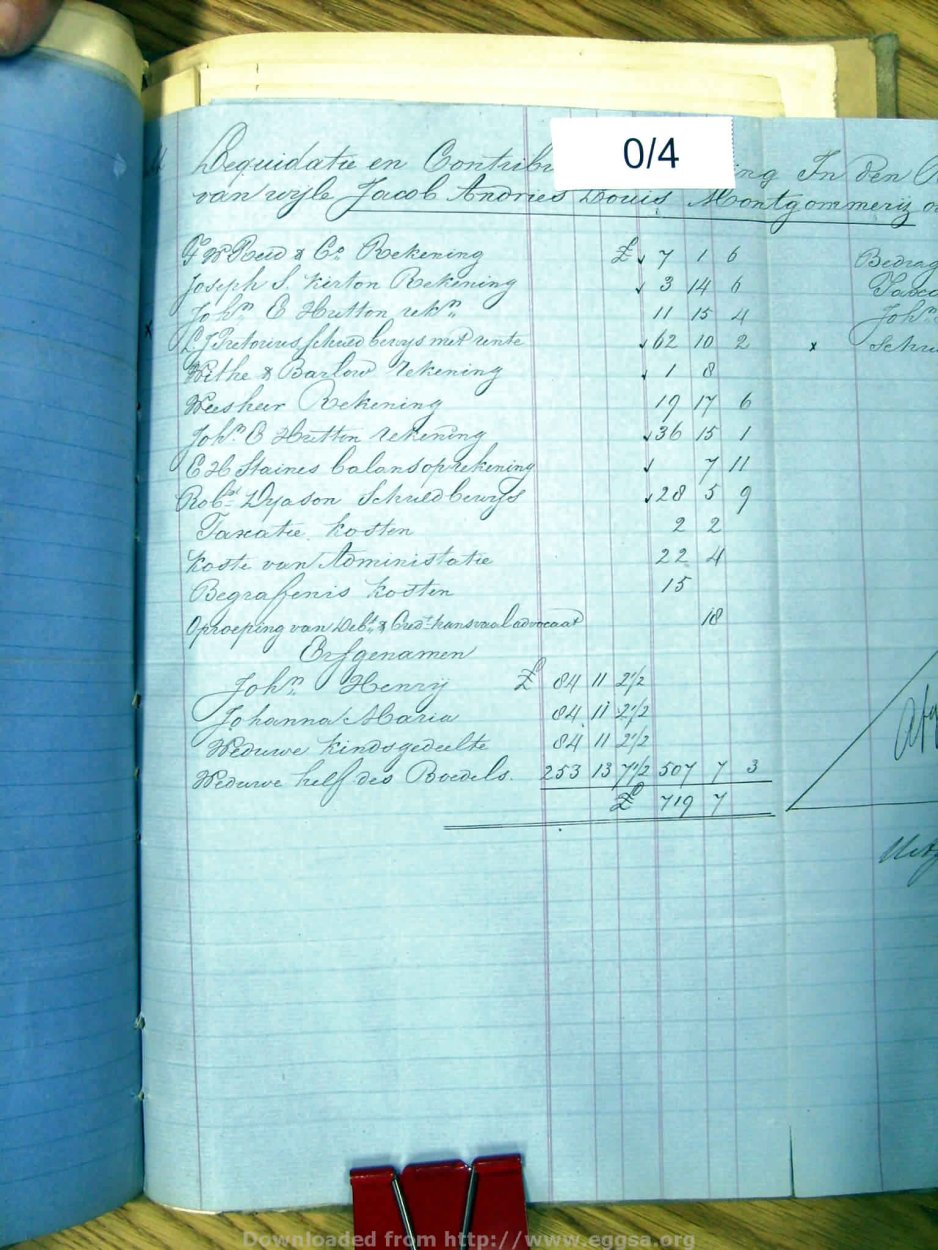 0/4
Lequidatie en Contrib ing In den
van wyle Jacob Andries Louis Montgommery
F W Reid & Co. Rekening £ 7 1 6
Joseph S. Kirton Rekening 3 14 6
John. E Hutton rekn. 11 15 4
L J Pretorius schuld bewys met rente 62 10 2
Withe & Barlow rekening 1 8
Weesheer Rekening 19 17 6
John. E Hutton rekening 36 15 1
E H Staines balans op rekening 7 11
Robt. Dyason Schuldbewys 28 5 9
Taxatie kosten 2 2
Koste van Administatie 22 4
Begrafenis kosten 15
Oproeping van Debt. & Credt. Transvaal advocaat 18
Erfgenamen
John. Henry £ 84 11 2 1/2
Johanna Maria 84 11 2 1/2
Weduwe kindsgedeelte 84 11 2 1/2
Weduwe helf des Boedels. 253 13 7 1/2 507 7 3
£ 719 7
Bedrag
Taxa
John
Schul
Downloaded from http://www.eggsa.org